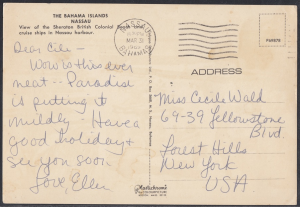 THE BAHAMA ISLANDS
NASSAU
View of the Sheraton British Colonial
cruise ships in Nassau harbour.
Dear Cile -
Wow is this ever
neat - Paradise
is putting it
mildly. Have a
good holiday &
see you soon.
Love, Ellen
NASSAU
BAHAMAS
ADDRESS
Miss Cecile Wald
69-39 Yellowstone
Blvd
Forest Hills
New York
USA